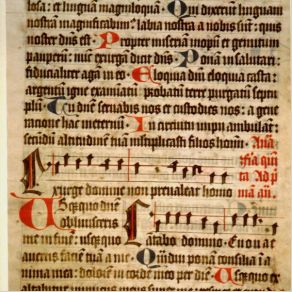 losa: et linguam magniloquā Qui dixerunt linguam
nostrā magnificabimꝰ labia nostra a nobis sūt: quis
noster dn̄s est: Propter miseriā inopū et gemitum
pauperū: nūc exurgā dicit dn̄s Ponā in salutari:
fiducialiter agā in eo Eloquia dn̄i eloquia casta:
argentū igne examinatū: probatū terre purgatū septu
plū Tu dn̄e servabis nos et custodies nos: a gene
ratione hac in eternū In circuitu impii ambulāt:
secūdū altitudinē tuā multiplicasti filios hoīm:
Exurge domine non prevaleat homo
Usqꝫquo dn̄e
oblivisceris
me in finē: usqꝫquo Letabor domino. Euouae
faciē tuā a me Quādiu ponā consilia in
anima mea: dolorē in corde meo per diē Usqꝫquo ex